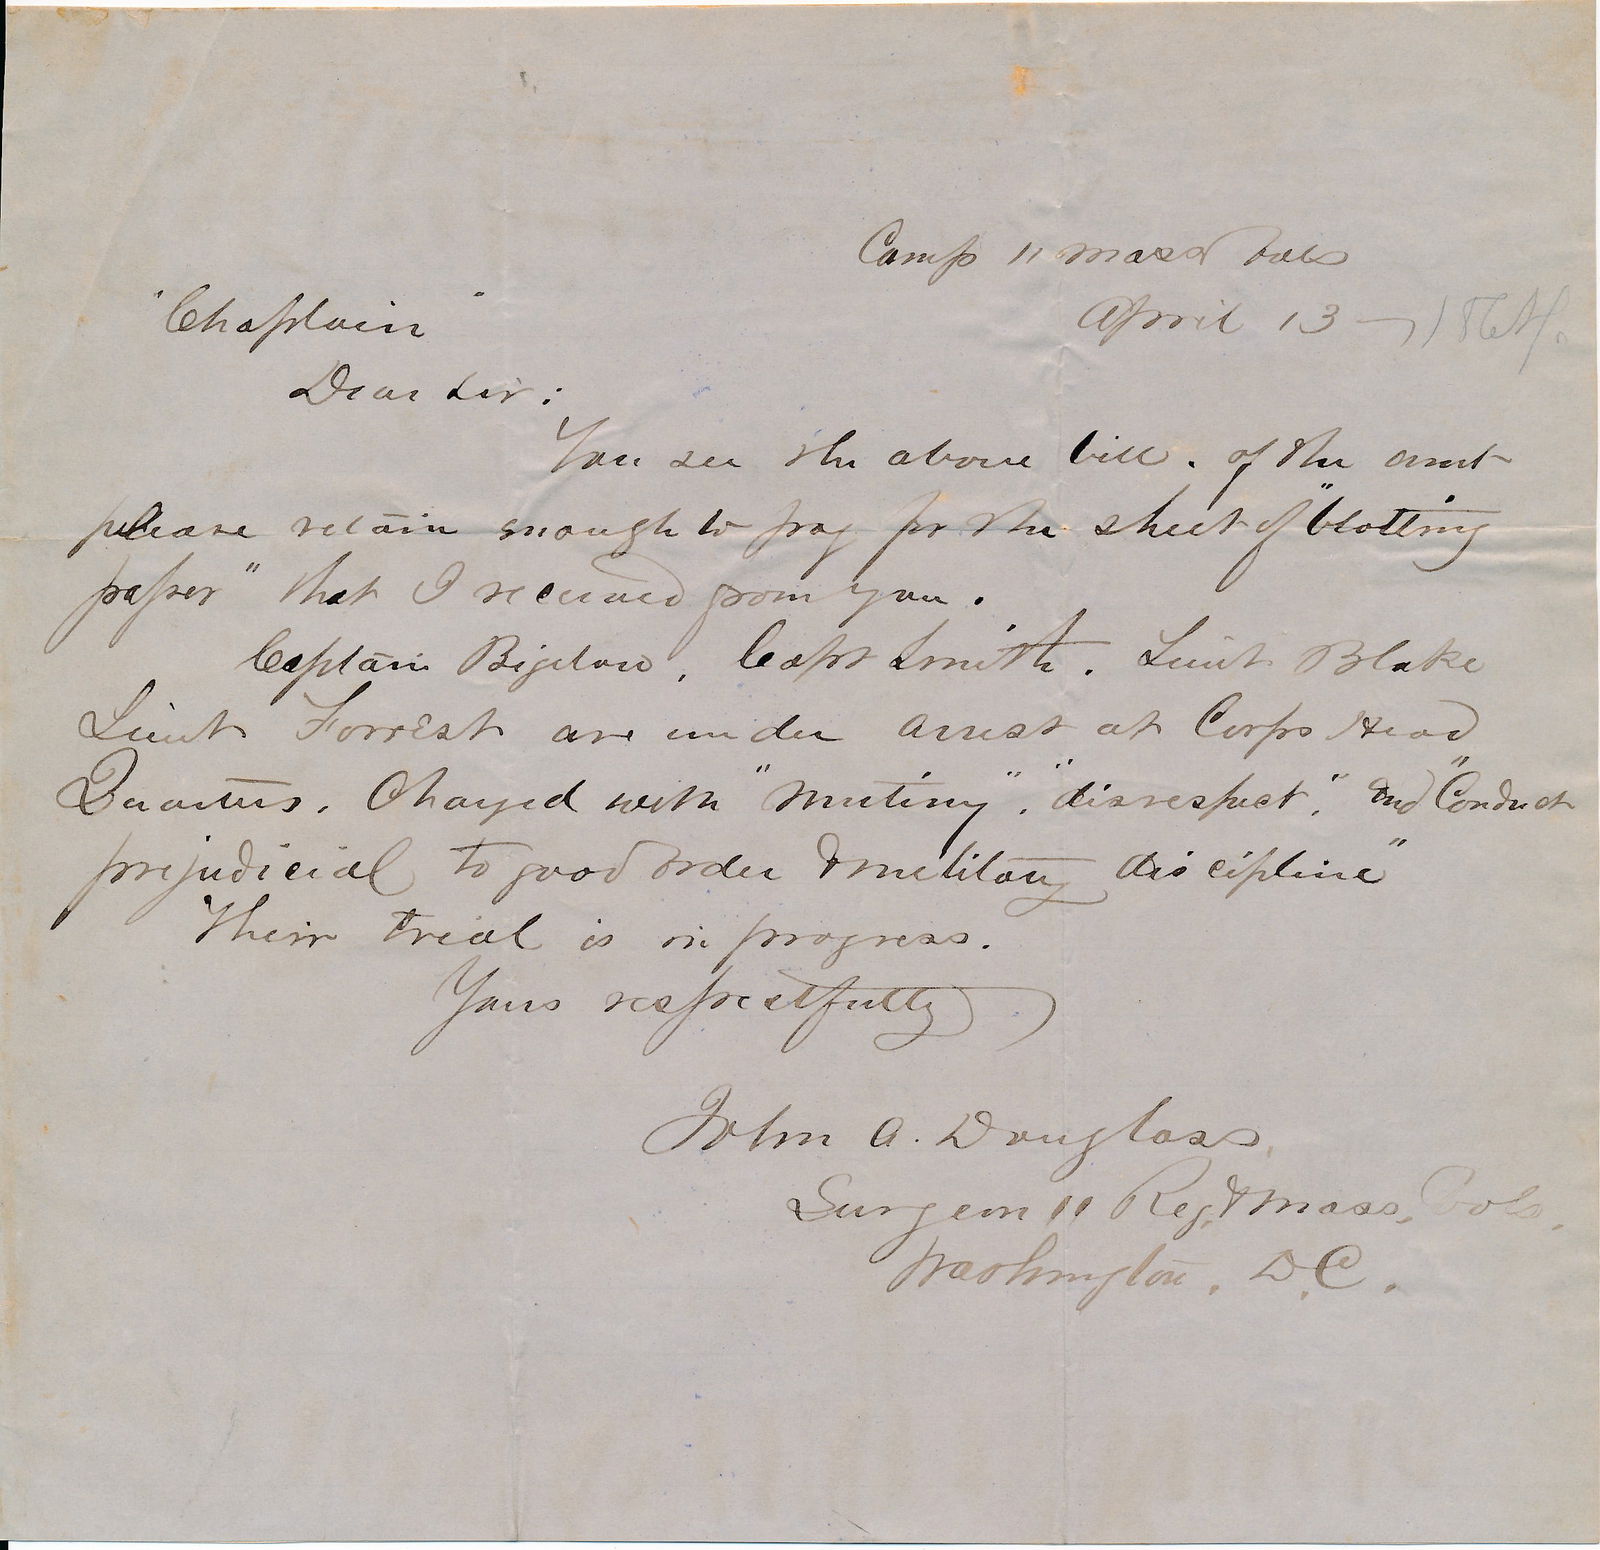 Camp 11 Mass Vols
April 13 — 1864.
"Chaplain"
Dear Sir:
You see the above bill. of the amt
please retain enough to pay for the sheet of "blotting
paper" that I received from you.
Captain Bigelow, Capt Smith. Lieut Blake
Lieut Forrest are under arrest at Corps Head
Quarters. Charged with "Mutiny", "disrespect", and "Conduct
prejudicial to good order & military discipline"
Their trial is in progress.
Yours respectfully
John A. Douglass
Surgeon 11 Regt Mass. Vols.
Washington. D.C.